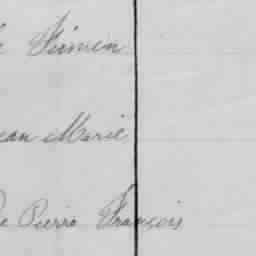 Firmin
ean Marie
e Pierre François